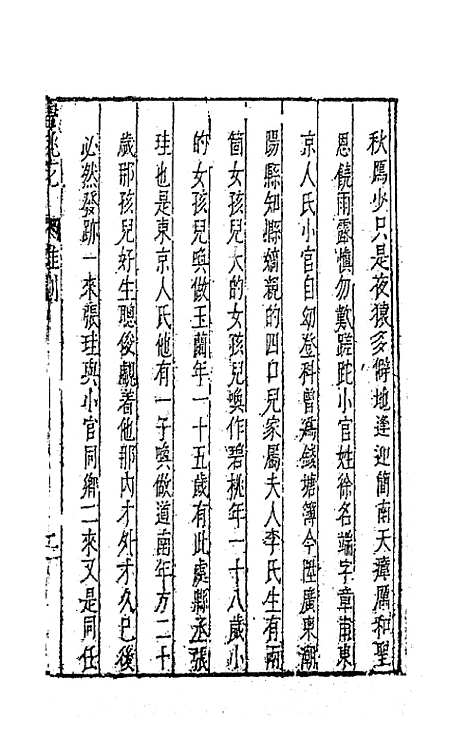 秋鴈少只是夜猿多僻地逢迎簡南天瘴厲和聖
恩饒雨露慎勿歎蹉跎小官姓徐名端字章甫東
京人氏小官自幼登科曾為錢塘簿今陞廣東潮
陽縣知縣嫡親的四口兒家屬夫人李氏生有兩
箇女孩兒大的女孩兒喚作碧桃年一十八歲小
的女孩兒喚做玉蘭年一十五歲有此處縣丞張
珪也是東京人氏他有一子喚做道南年方二十
歲那孩兒好生聰俊覷著他那内才外才久已後
必然發跡一來張珪與小官同鄉二來又是同任
碧桃花 雜劇 二